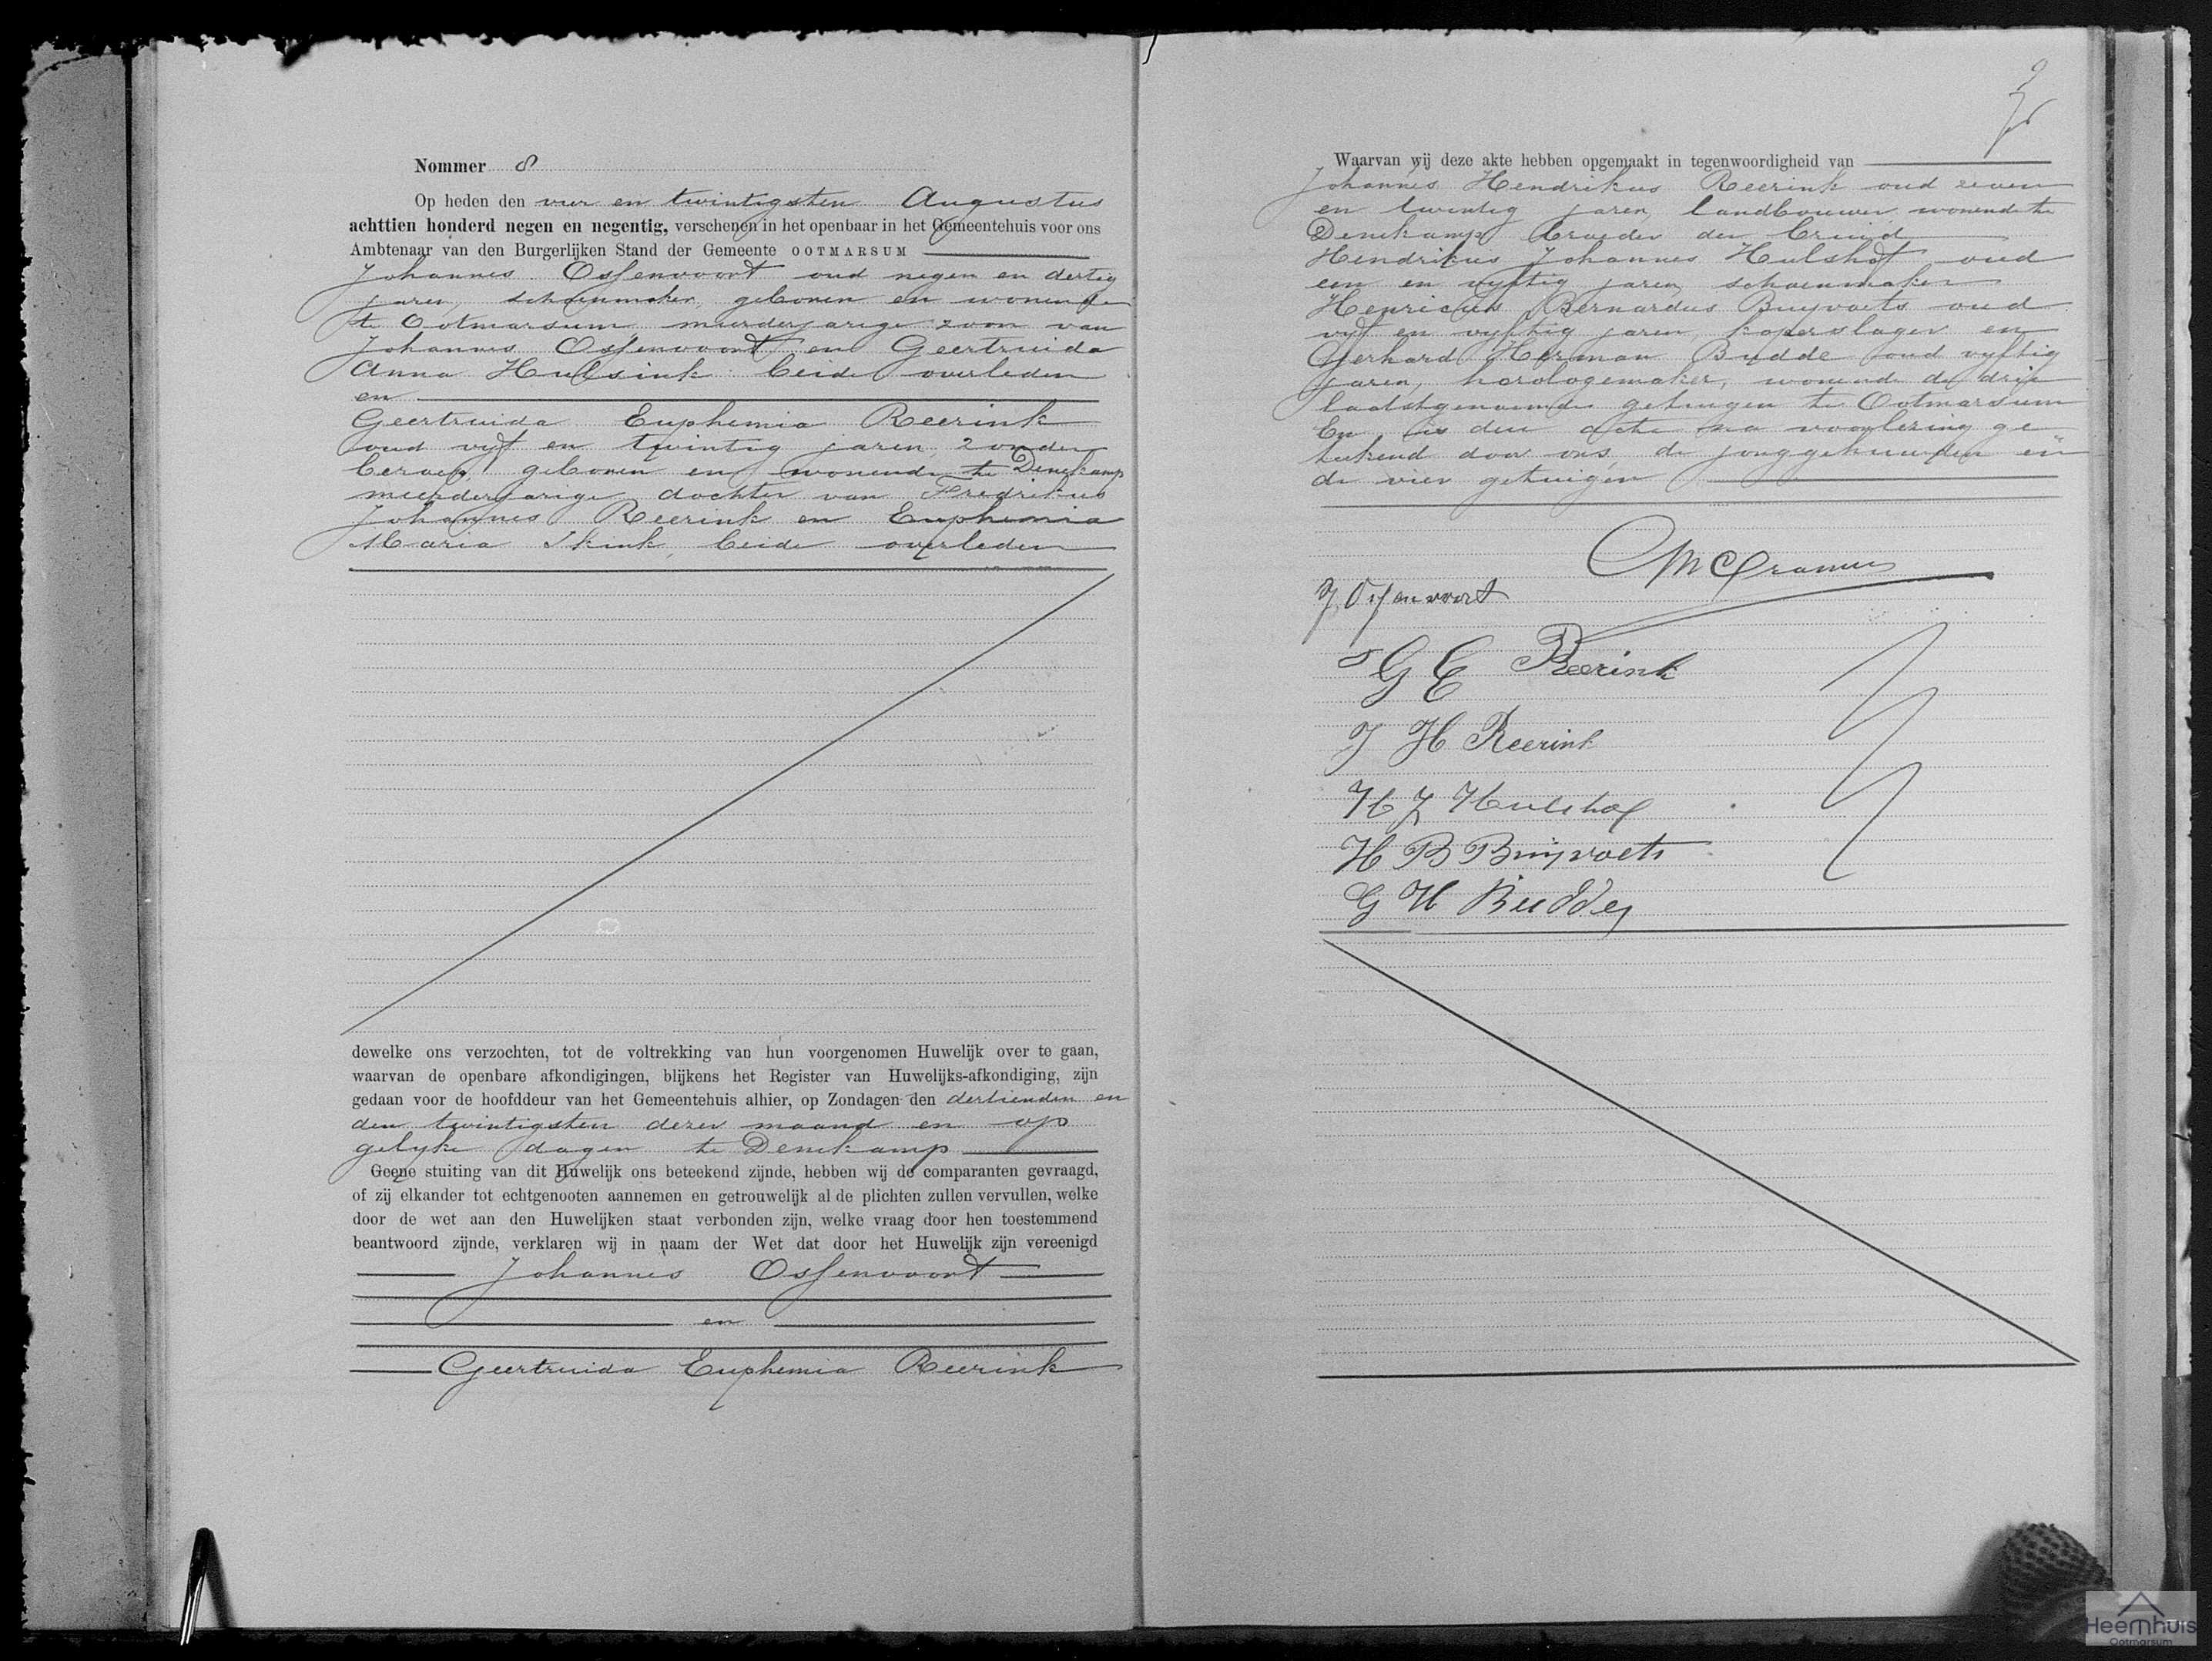 Nommer 8
Op heden den vier en twintigsten Augustus
achttien honderd negen en negentig, verschenen in het openbaar in het Gemeentehuis voor ons
Ambtenaar van den Burgerlijken Stand der Gemeente OOTMARSUM
Johannes Ossenvoort oud negen en dertig
jaren, schoenmaker, geboren en wonende
te Ootmarsum, meerderjarige zoon van
Johannes Ossenvoort en Geertruida
Anna Hulsink beide overleden
en
Geertruida Euphemia Reerink
oud vyf en twintig jaren, zonder
beroep, geboren en wonende te Denekamp
meerderjarige dochter van Fredrikus
Johannes Reerink en Euphemia
Maria Ikink, beide overleden
dewelke ons verzochten, tot de voltrekking van hun voorgenomen Huwelijk over te gaan,
waarvan de openbare afkondigingen, blijkens het Register van Huwelijks-afkondiging, zijn
gedaan voor de hoofddeur van het Gemeentehuis alhier, op Zondagen den dertienden en
den twintigsten dezer maand en op
gelyke dagen te Denekamp
Geene stuiting van dit Huwelijk ons beteekend zijnde, hebben wij de comparanten gevraagd,
of zij elkander tot echtgenooten aannemen en getrouwelijk al de plichten zullen vervullen, welke
door de wet aan den Huwelijken staat verbonden zijn, welke vraag door hen toestemmend
beantwoord zijnde, verklaren wij in naam der Wet dat door het Huwelijk zijn vereenigd
Johannes Ossenvoort
en
Geertruida Euphemia Reerink
9
Waarvan wij deze akte hebben opgemaakt in tegenwoordigheid van
Johannes Hendrikus Reerink oud zeven
en twintig jaren, landbouwer, wonende te
Denekamp broeder der bruid
Hendrikus Johannes Hulshof oud
een en vyftig jaren, schoenmaker
Henricus Bernardus Buyvoets oud
vyf en vyftig jaren, koperslager en
Gerhard Herman Budde oud vyftig
jaren, horologemaker, wonende de drie
laatstgenoemde getuigen te Ootmarsum
En is deze acte na voorlezing ge
teekend door ons, de jonggehuwden en
de vier getuigen
J. Ossenvoort
G E Reerink
J H Reerink
H J Hulshof
H B Buyvoets
G H Budde
Heemhuis
Ootmarsum